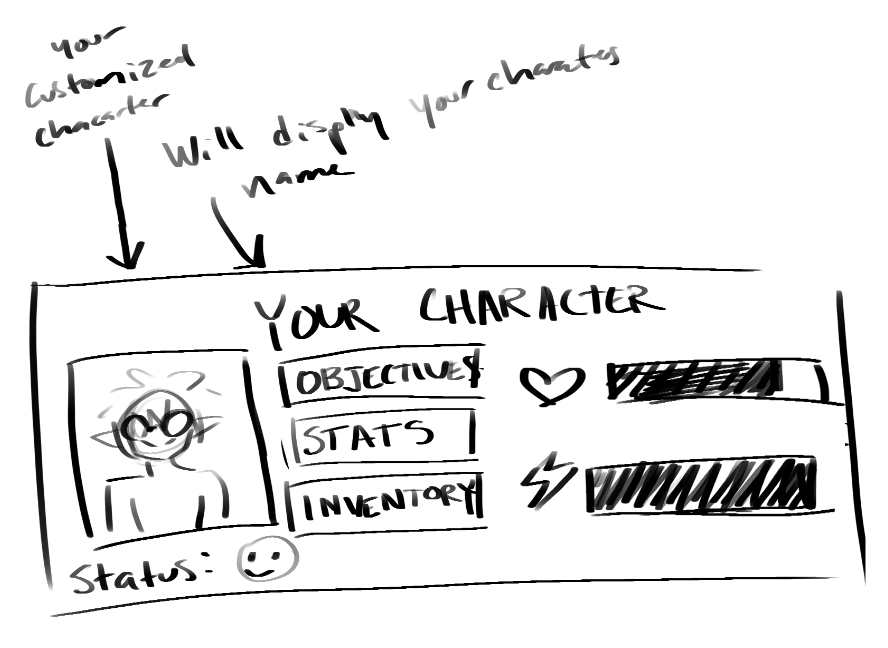 your
customized
chacarter
Will display your charates
name
YOUR CHARACTER
OBJECTIVES
STATS
INVENTORY
Status: